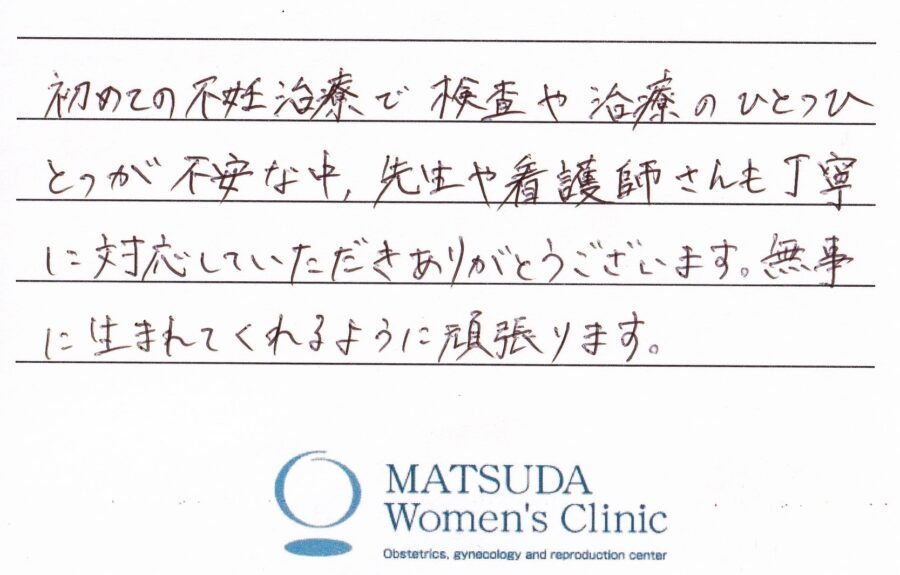 初めての不妊治療で検査や治療のひとつひ
とつが不安な中,先生や看護師さんも丁寧
に対応していただきありがとうございます。無事
に生まれてくれるように頑張ります。
MATSUDA
Women's Clinic
Obstetrics, gynecology and reproduction center